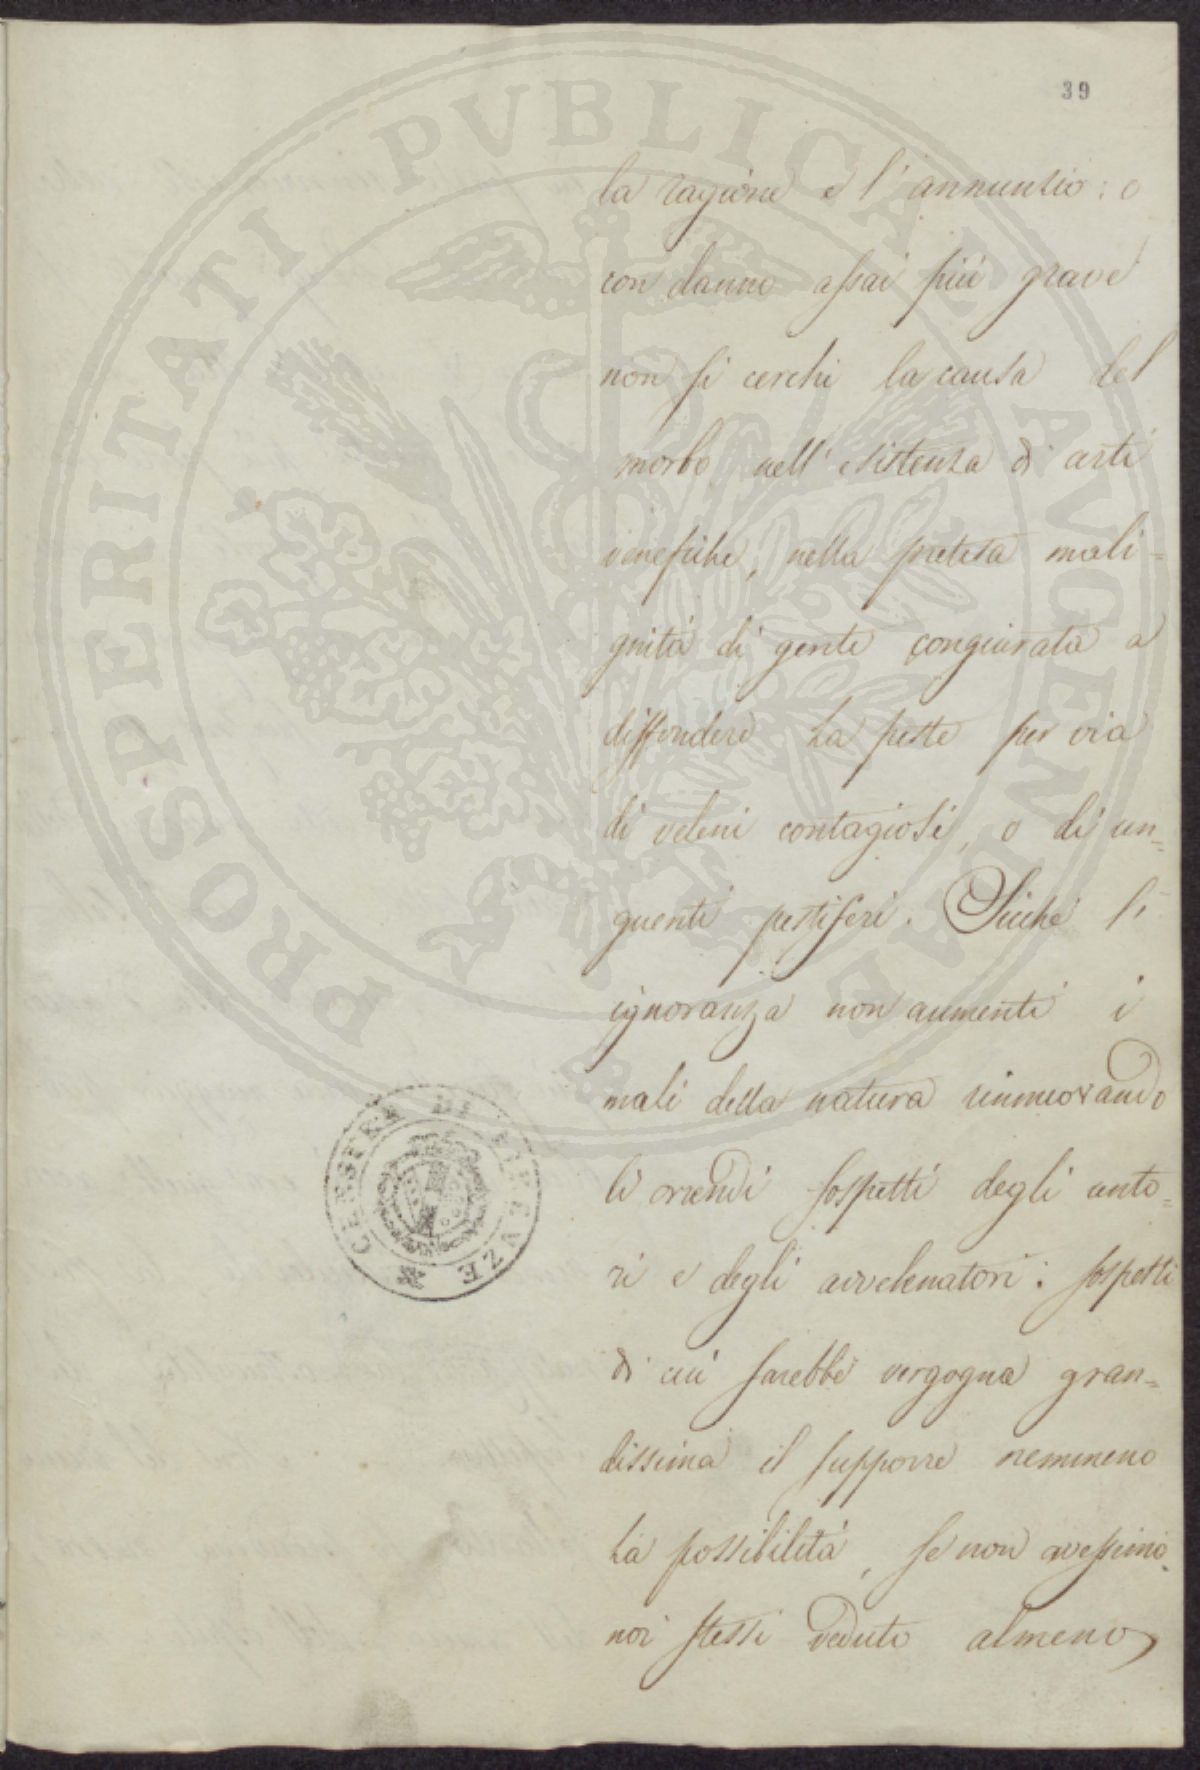 39
la ragione e l'annunzio: o
con danno assai più grave
non si cerchi la causa del
morbo nell'esistenza di arti
venefiche, nella pretesa mali=
gnità di gente congiurata a
diffondere la peste per via
di veleni contagiosi, o di un=
guenti pestiferi. Sicchè l'
ignoranza non aumenti i
mali della natura rinnuovando
li orrendi sospetti degli unto=
ri e degli avvelenatori: sospetti
di cui sarebbe vergogna gran=
dissima il supporre nemmeno
la possibilità, se non avessimo
noi stessi veduto almeno
PROSPERITATI PVBLICAE AVGENDAE